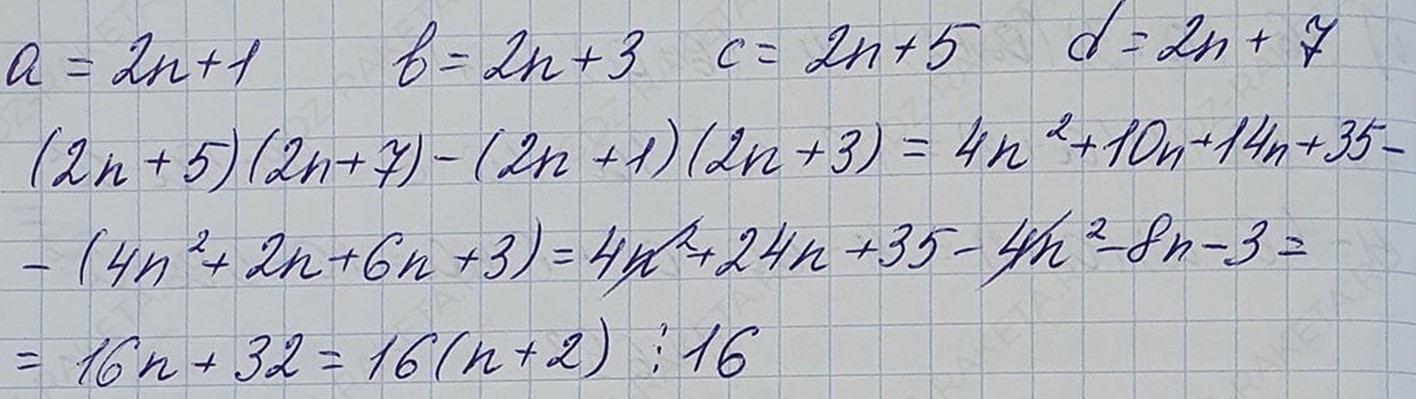 a = 2n+1 b = 2n+3 c = 2n+5 d = 2n+7
(2n+5)(2n+7)-(2n+1)(2n+3) = 4n²+10n+14n+35-
-(4n²+2n+6n+3) = 4n²+24n+35-4n²-8n-3 =
= 16n+32 = 16(n+2) ⋮ 16